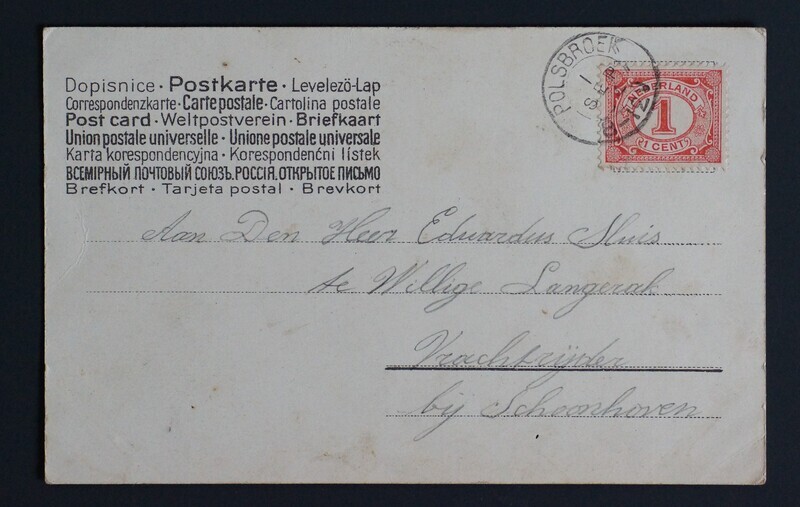 Dopisnice · Postkarte · Levelező-Lap
Correspondenzkarte · Carte postale · Cartolina postale
Post card · Weltpostverein · Briefkaart
Union postale universelle · Unione postale universale
Karta korespondencyjna · Korespondenćni lístek
ВСЕМІРНЫЙ ПОЧТОВЫЙ СОЮЗЪ. РОССІЯ. ОТКРЫТОЕ ПИСЬМО
Brefkort · Tarjeta postal · Brevkort
POLSBROEK
NEDERLAND
1
1 CENT
Aan Den Heer Eduardus Sluis
te Willige Langerak
Vrachtrijder
bij Schoonhoven